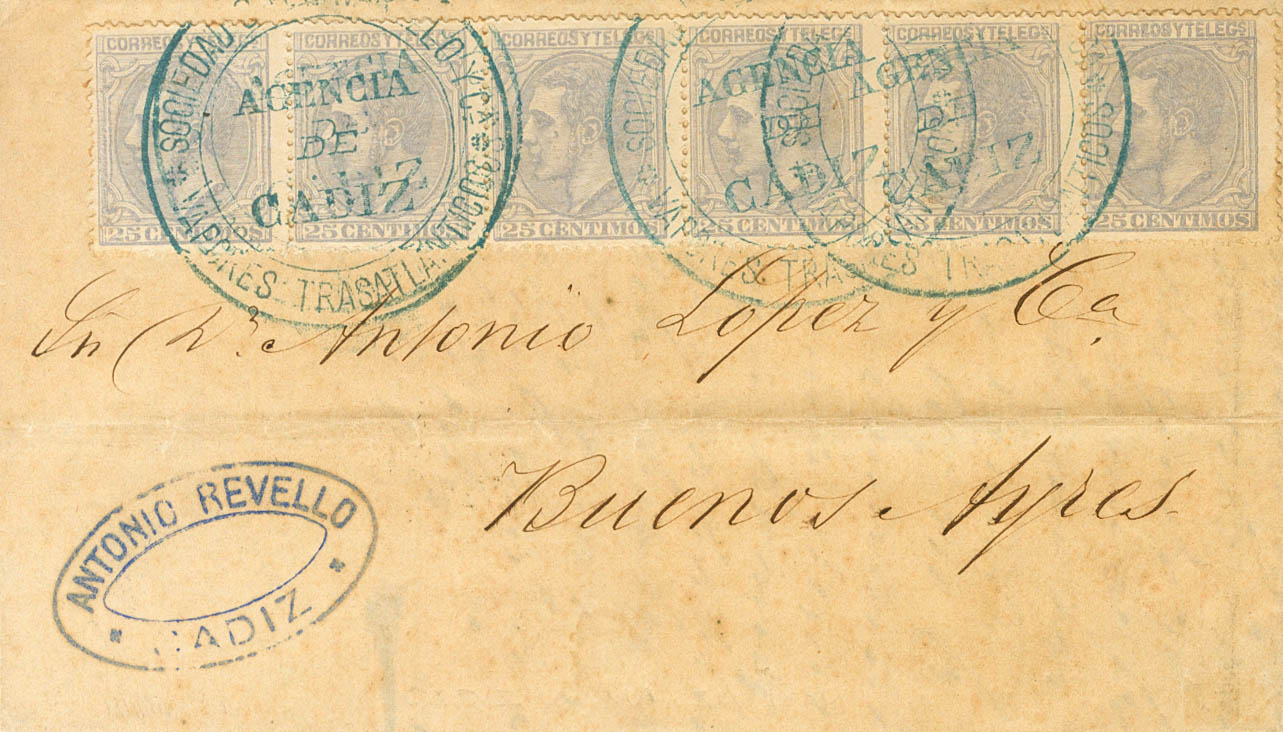 CORREOS Y TELEGS CORREOS Y TELEGS CORREOS Y TELEGS CORREOS Y TELEGS CORREOS Y TELEGS CORREOS Y TELEGS
25 CENTIMOS 25 CENTIMOS 25 CENTIMOS 25 CENTIMOS 25 CENTIMOS 25 CENTIMOS
SOCIEDAD LO Y Cª
VAPORES TRASATLANTICOS
AGENCIA
DE
CADIZ
SOCIEDA
VAPORES TRA
AGENCIA
DE
CADIZ
AGENCIA
DE
CADIZ
Sñ Dⁿ Antonio Lopez y Ca.
Buenos Ayres
ANTONIO REVELLO
CADIZ